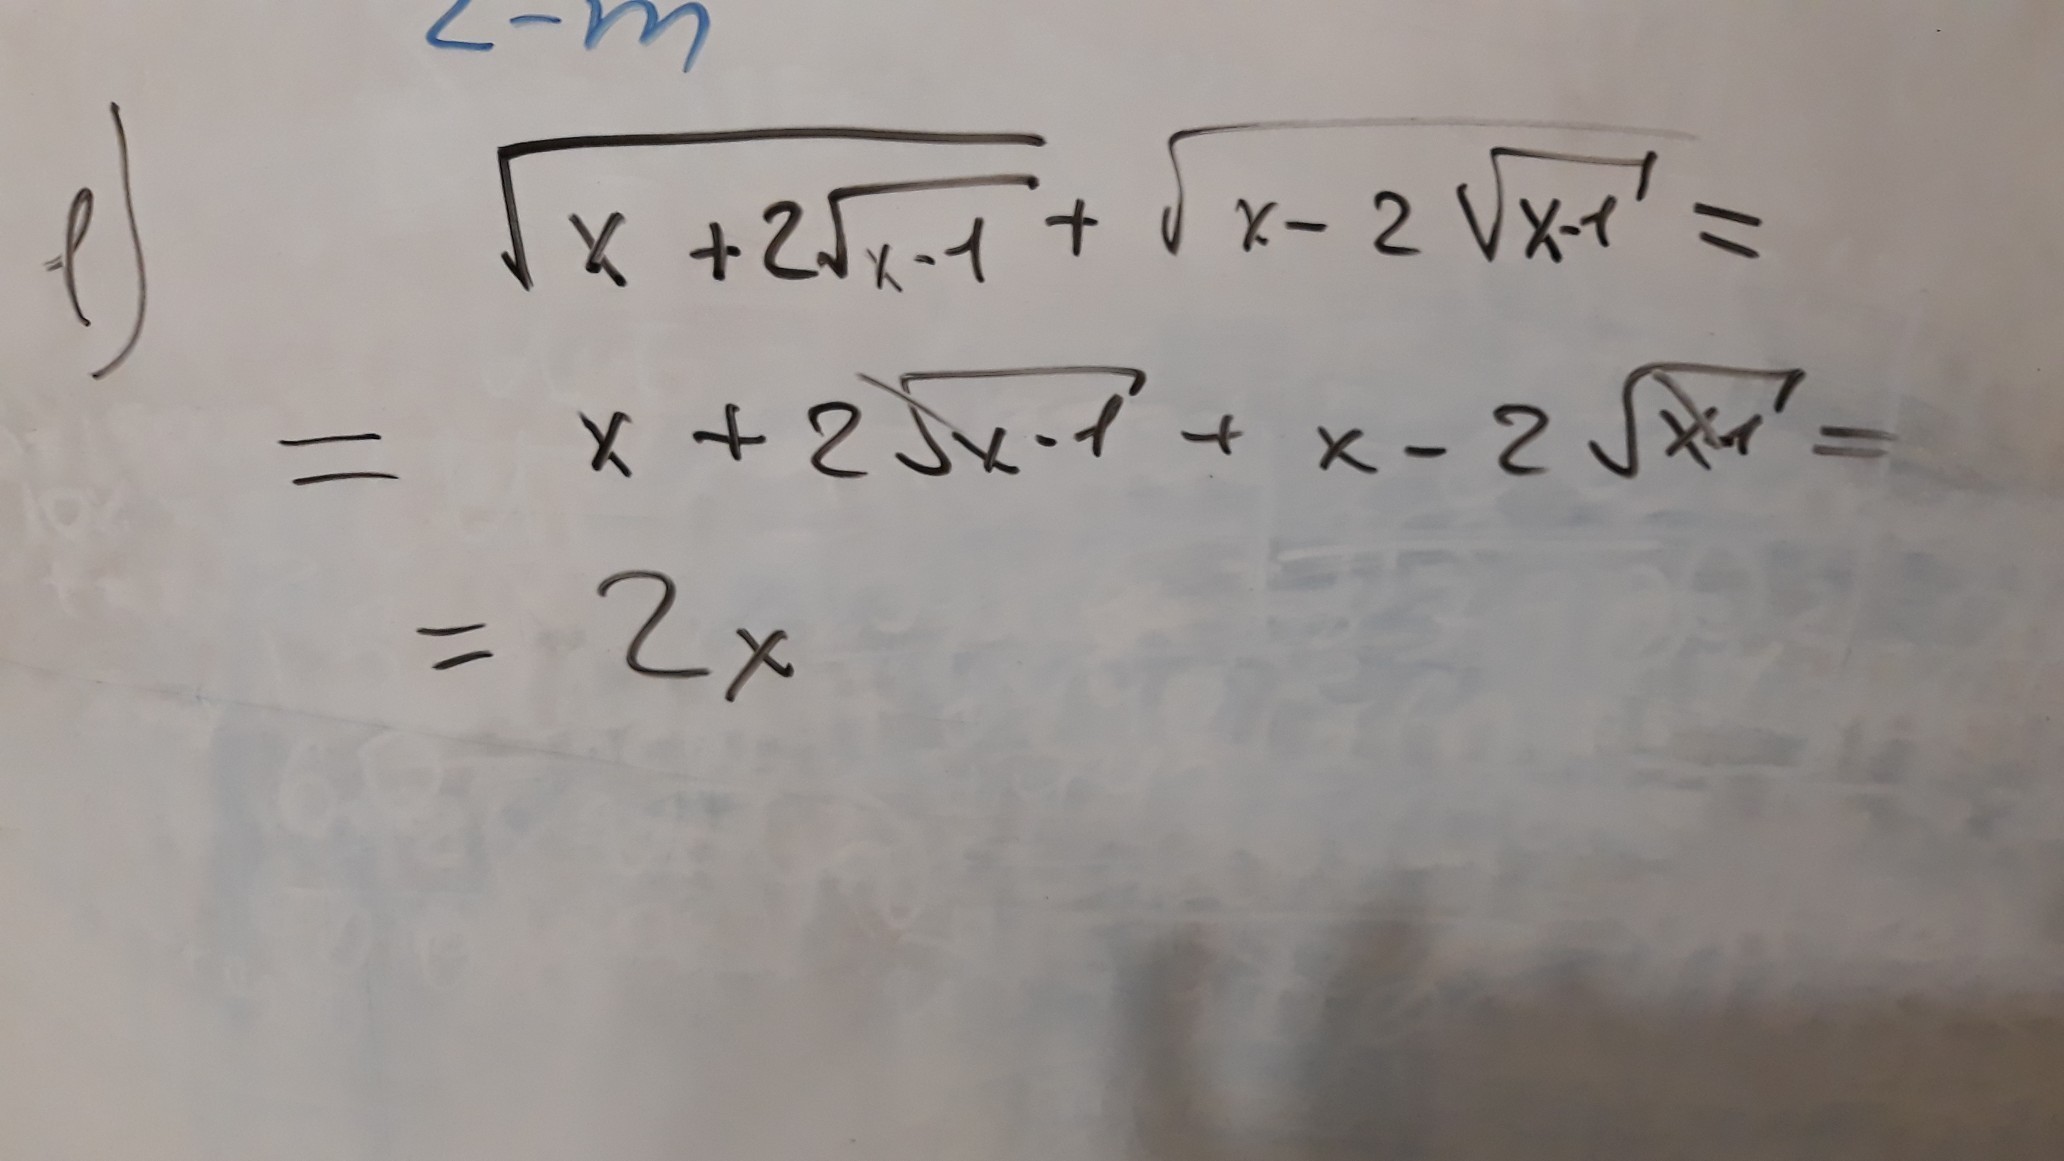 2-m
e) √(x + 2√(x-1)) + √(x - 2√(x-1)) =
= x + 2√(x-1) + x - 2√(x-1) =
= 2x